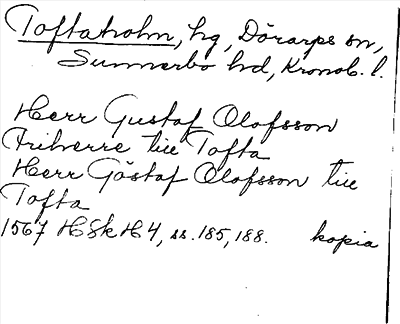 Toftaholm, hg, Dörarps sn,
Sunnerbo hd, Kronob. l.
Herr Gustaf Olofsson
Friherre till Tofta
Herr Göstaf Olofsson till
Tofta
1567 HSkH4, ss. 185, 188. kopia